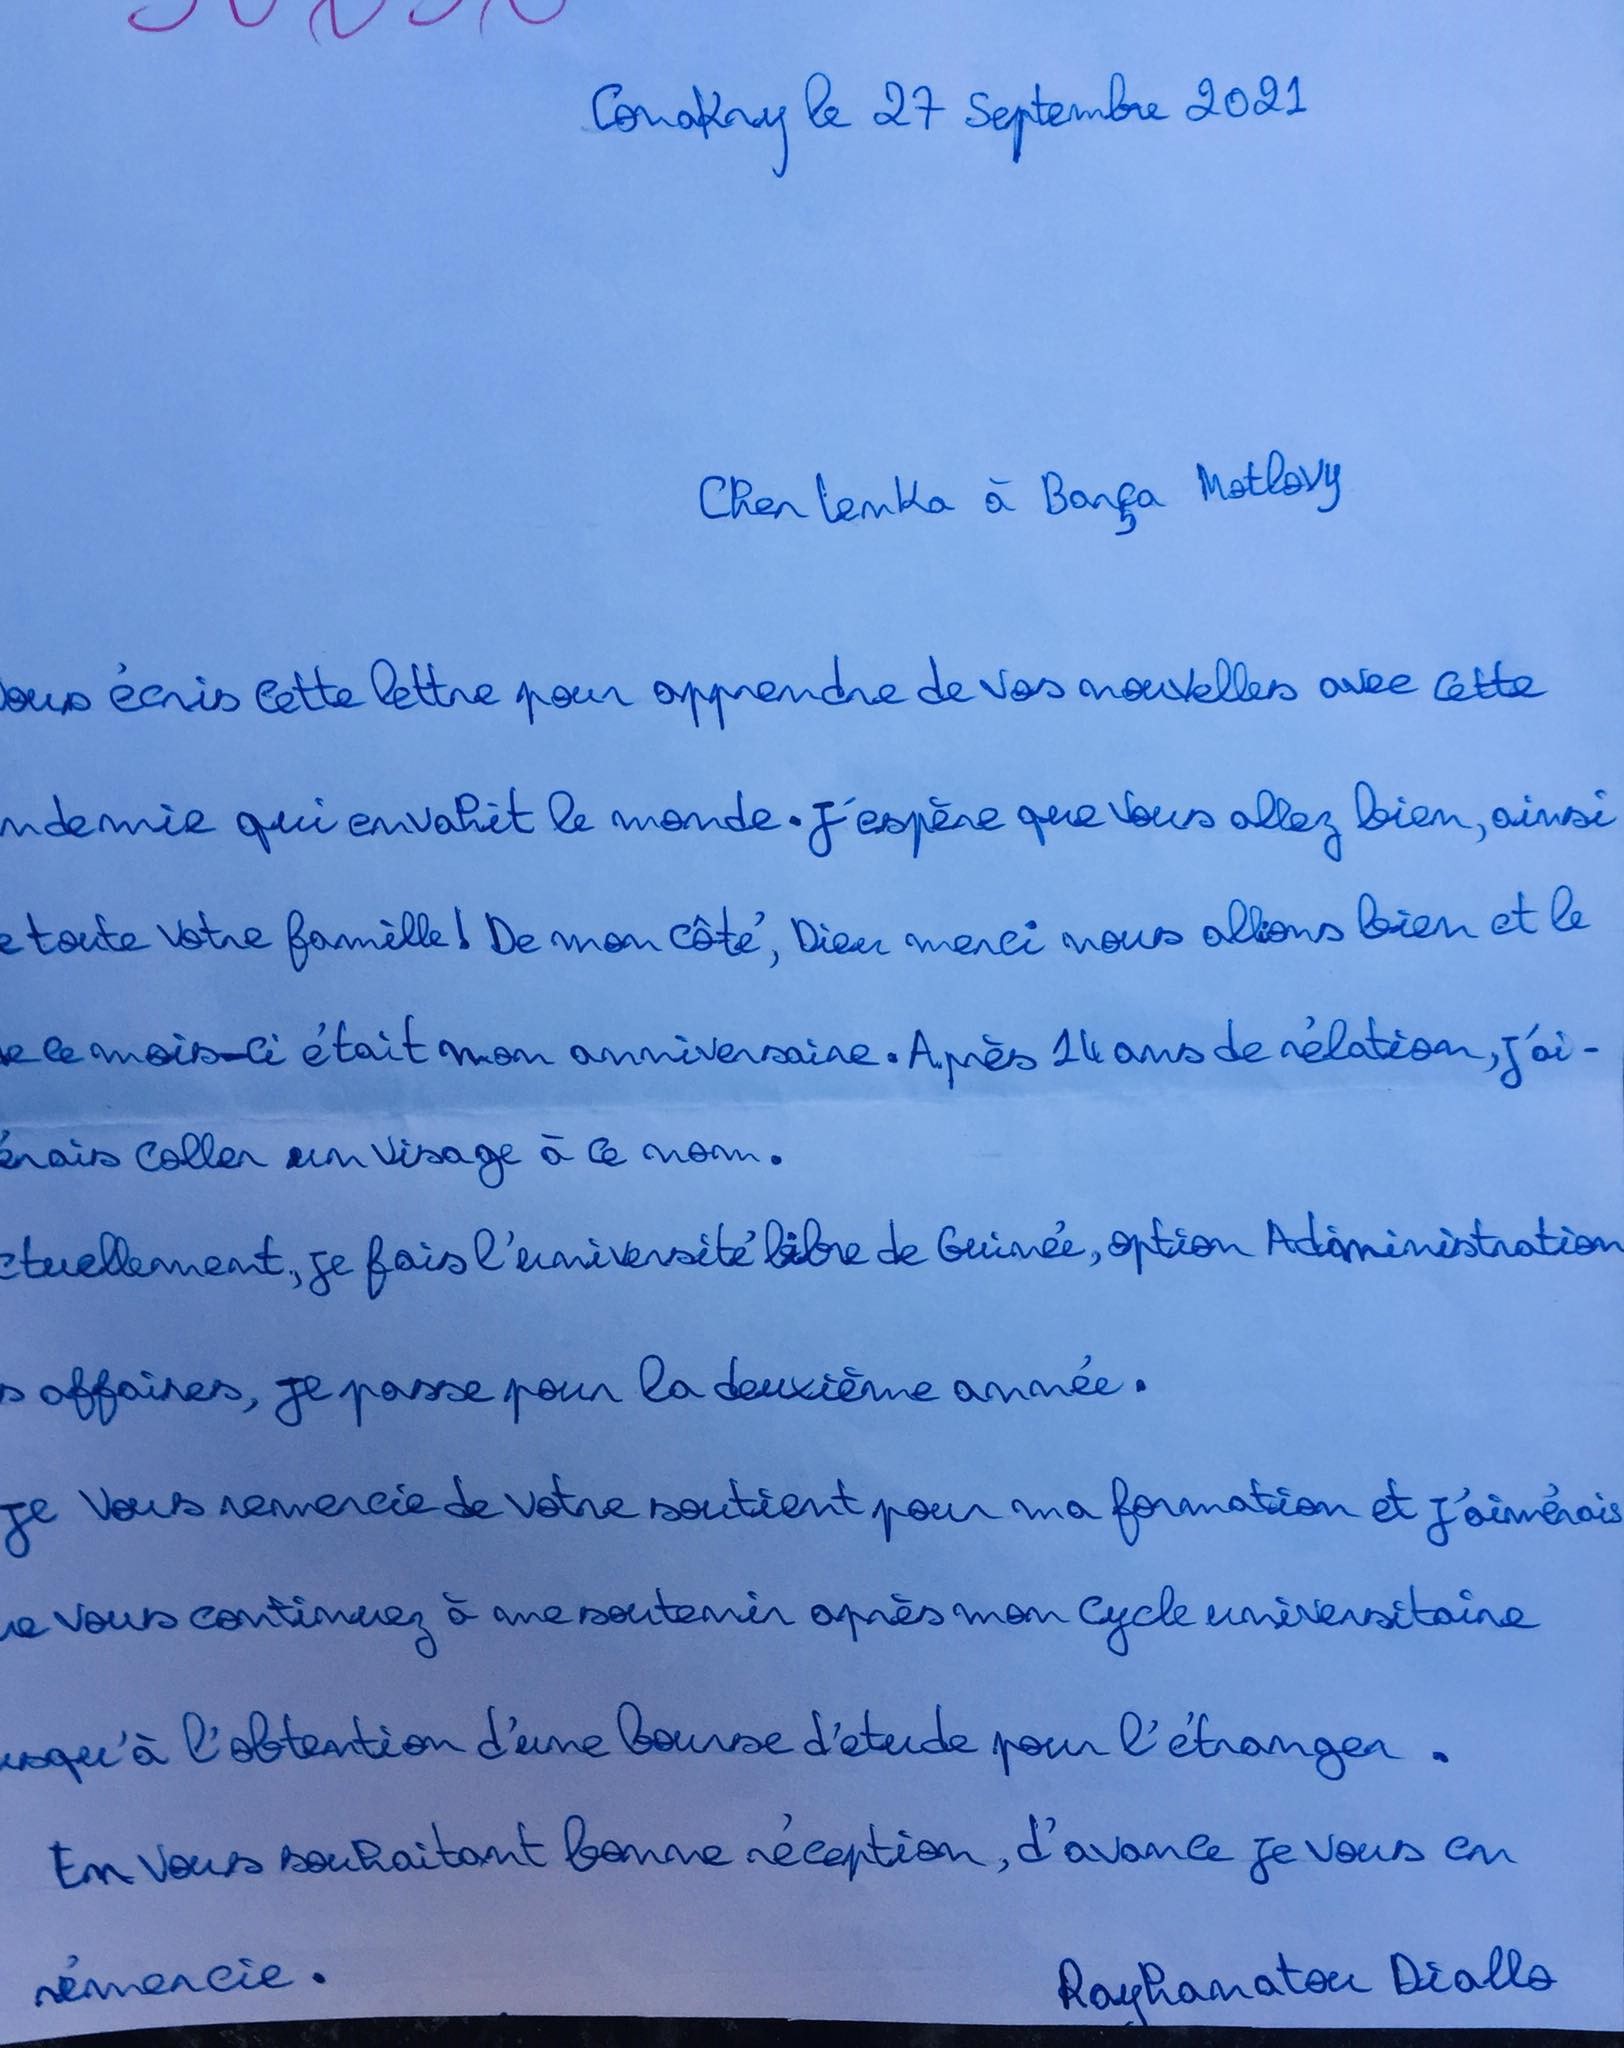 Conakry le 27 Septembre 2021
Cher lenka à Barça Motlovy
vous écris cette lettre pour apprendre de vos nouvelles avec cette
ndemie qui envahit le monde. J'espère que vous allez bien, ainsi
e toute votre famille! De mon côté, Dieu merci nous allions bien et le
ce mois-ci était mon anniversaire. Après 14 ans de rélation, j'ai-
érais coller un visage à ce nom.
ctuellement, je fais l'université libre de Guinée, option Administration
s affaires, je passe pour la deuxième année.
Je vous remercie de votre soutient pour ma formation et j'aimérais
ue vous continuez à me soutenir après mon cycle universitaire
usqu'à l'obtention d'une bourse d'etude pour l'étranger.
En vous souhaitant bonne réception, d'avance je vous en
rémercie.
Rayhanatou Diallo